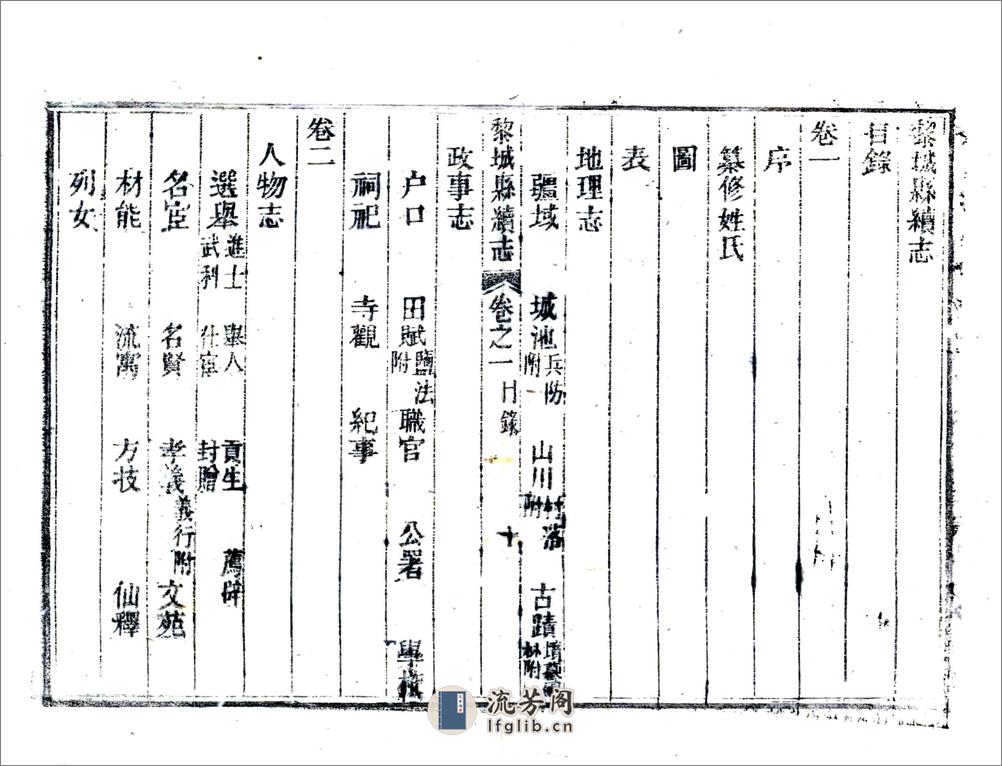 黎城縣續志
目錄
卷一
序
纂修姓氏
圖
表
地理志
疆域 城池兵防附 山川村落附 古蹟墳墓附
黎城縣續志 卷之一 目錄 十
政事志
户口 田賦鹽法附 職官 公署 學校
祠祀 寺觀 紀事
卷二
人物志
選舉進士 舉人 貢生 薦辟 武科 仕宦 封贈
名宦 名賢 孝義義行附 文苑
材能 流寓 方技 仙釋
列女
流芳阁
lfglib.cn